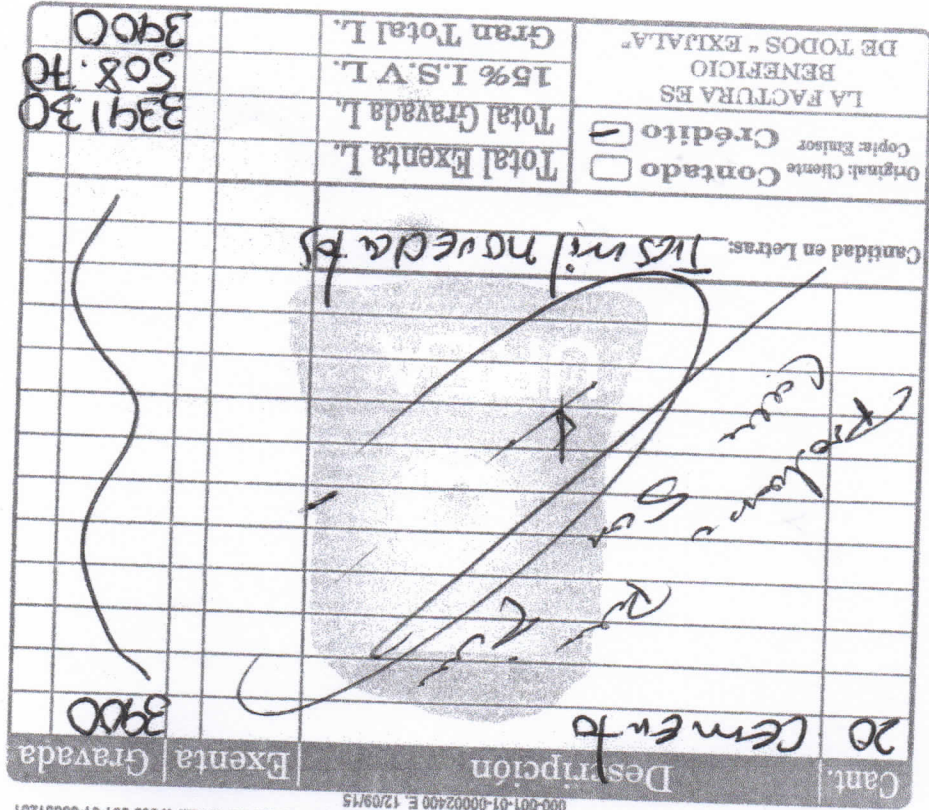 000-001-01-00002400 E. 12/09/15
Cant. Descripción Exenta Gravada
20 Cemento 3900
Cantidad en Letras: Tres mil novecientos
Original: Cliente Contado
Copia: Emisor Crédito
LA FACTURA ES
BENEFICIO
DE TODOS "EXIJALA"
Total Exenta L.
Total Gravada L. 3391.30
15% I.S.V L. 508.70
Gran Total L. 3900